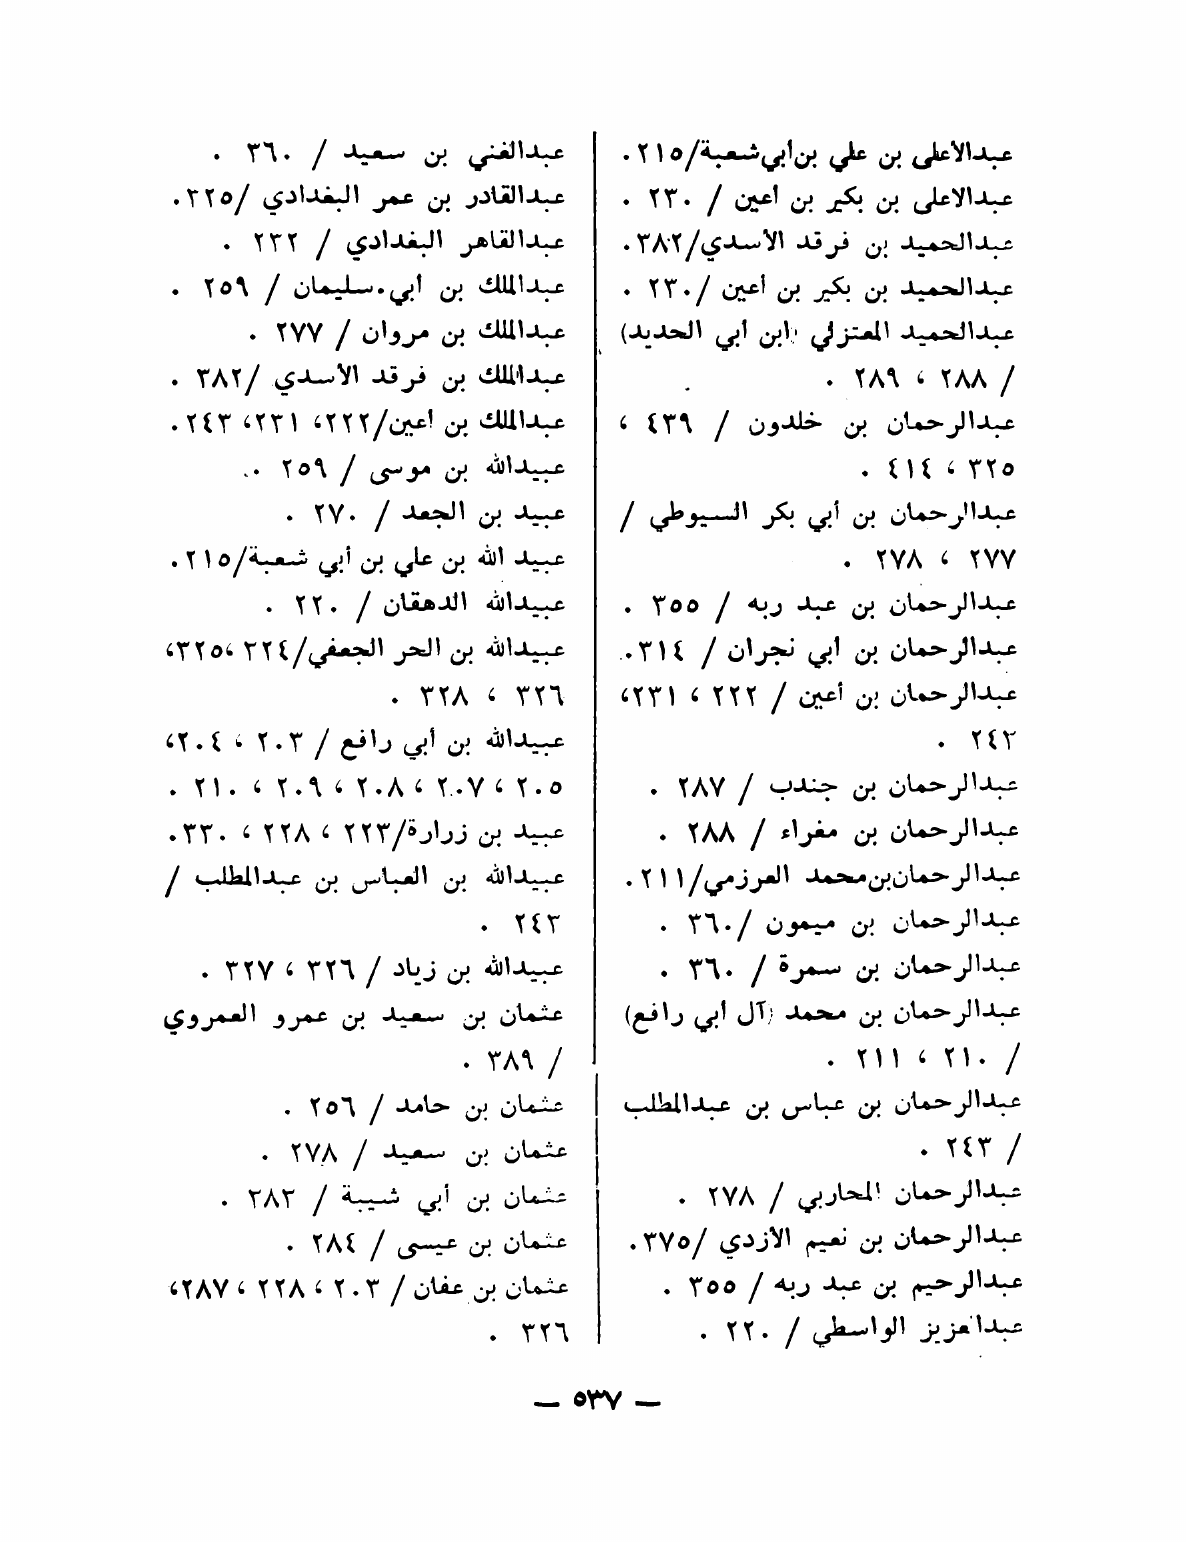 عبدالأعلى بن علي بن أبي شعبة/٢١٥.
عبدالاعلى بن بكير بن أعين / ٢٣٠ .
عبدالحميد بن فرقد الأسدي/٣٨٢.
عبدالحميد بن بكير بن أعين /٢٣٠ .
عبدالحميد المعتزلي (ابن أبي الحديد)
/ ٢٨٨ ، ٢٨٩ .
عبدالرحمان بن خلدون / ٤٣٩ ،
٣٢٥ ، ٤١٤ .
عبدالرحمان بن أبي بكر السيوطي /
٢٧٧ ، ٢٧٨ .
عبدالرحمان بن عبد ربه / ٣٥٥ .
عبدالرحمان بن أبي نجران / ٣١٤.
عبدالرحمان بن أعين / ٢٢٢ ، ٢٣١،
٢٤٣ .
عبدالرحمان بن جندب / ٢٨٧ .
عبدالرحمان بن مغراء / ٢٨٨ .
عبدالرحمان بن محمد العرزمي/٢١١.
عبدالرحمان بن ميمون /٣٦٠ .
عبدالرحمان بن سمرة / ٣٦٠ .
عبدالرحمان بن محمد (آل أبي رافع)
/ ٢١٠ ، ٢١١ .
عبدالرحمان بن عباس بن عبدالمطلب
/ ٢٤٣ .
عبدالرحمان المحاربي / ٢٧٨ .
عبدالرحمان بن نعيم الأزدي /٣٧٥.
عبدالرحيم بن عبد ربه / ٣٥٥ .
عبدالعزيز الواسطي / ٢٢٠ .
عبدالغني بن سعيد / ٣٦٠ .
عبدالقادر بن عمر البغدادي /٣٢٥.
عبدالقاهر البغدادي / ٢٣٢ .
عبدالملك بن أبي سليمان / ٢٥٩ .
عبدالملك بن مروان / ٢٧٧ .
عبدالملك بن فرقد الأسدي /٣٨٢ .
عبدالملك بن أعين/٢٢٢، ٢٣١، ٢٤٣ .
عبيدالله بن موسى / ٢٥٩ .
عبيد بن الجعد / ٢٧٠ .
عبيد الله بن علي بن أبي شعبة/٢١٥.
عبيدالله الدهقان / ٢٢٠ .
عبيدالله بن الحر الجعفي/٢٢٤ ،٣٢٥،
٣٢٦ ، ٣٢٨ .
عبيدالله بن أبي رافع / ٢٠٣ ، ٢٠٤،
٢٠٥ ، ٢٠٧ ، ٢٠٨ ، ٢٠٩ ، ٢١٠ .
عبيد بن زرارة/٢٢٣ ، ٢٢٨ ، ٣٣٠.
عبيدالله بن العباس بن عبدالمطلب /
٢٤٣ .
عبيدالله بن زياد / ٣٢٦ ، ٣٢٧ .
عثمان بن سعيد بن عمرو العمروي
/ ٣٨٩ .
عثمان بن حامد / ٢٥٦ .
عثمان بن سعيد / ٢٧٨ .
عثمان بن أبي شيبة / ٢٨٣ .
عثمان بن عيسى / ٢٨٤ .
عثمان بن عفان / ٢٠٣ ، ٢٢٨ ، ٢٨٧،
٣٢٦ .
— ٥٣٧ —